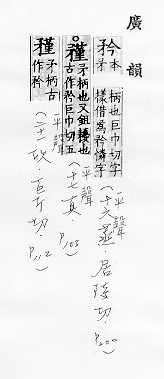 廣韻
矜本
矛
柄也巨巾切字
樣借爲矜憐字
(平聲
十六蒸居陵切.P.200)
䂓矛柄也又鉏櫌也
古作矜巨巾切五
平聲
(十七真.P.103)
矛柄古
作矜
平聲
(二十一欣.巨斤切.P.112)